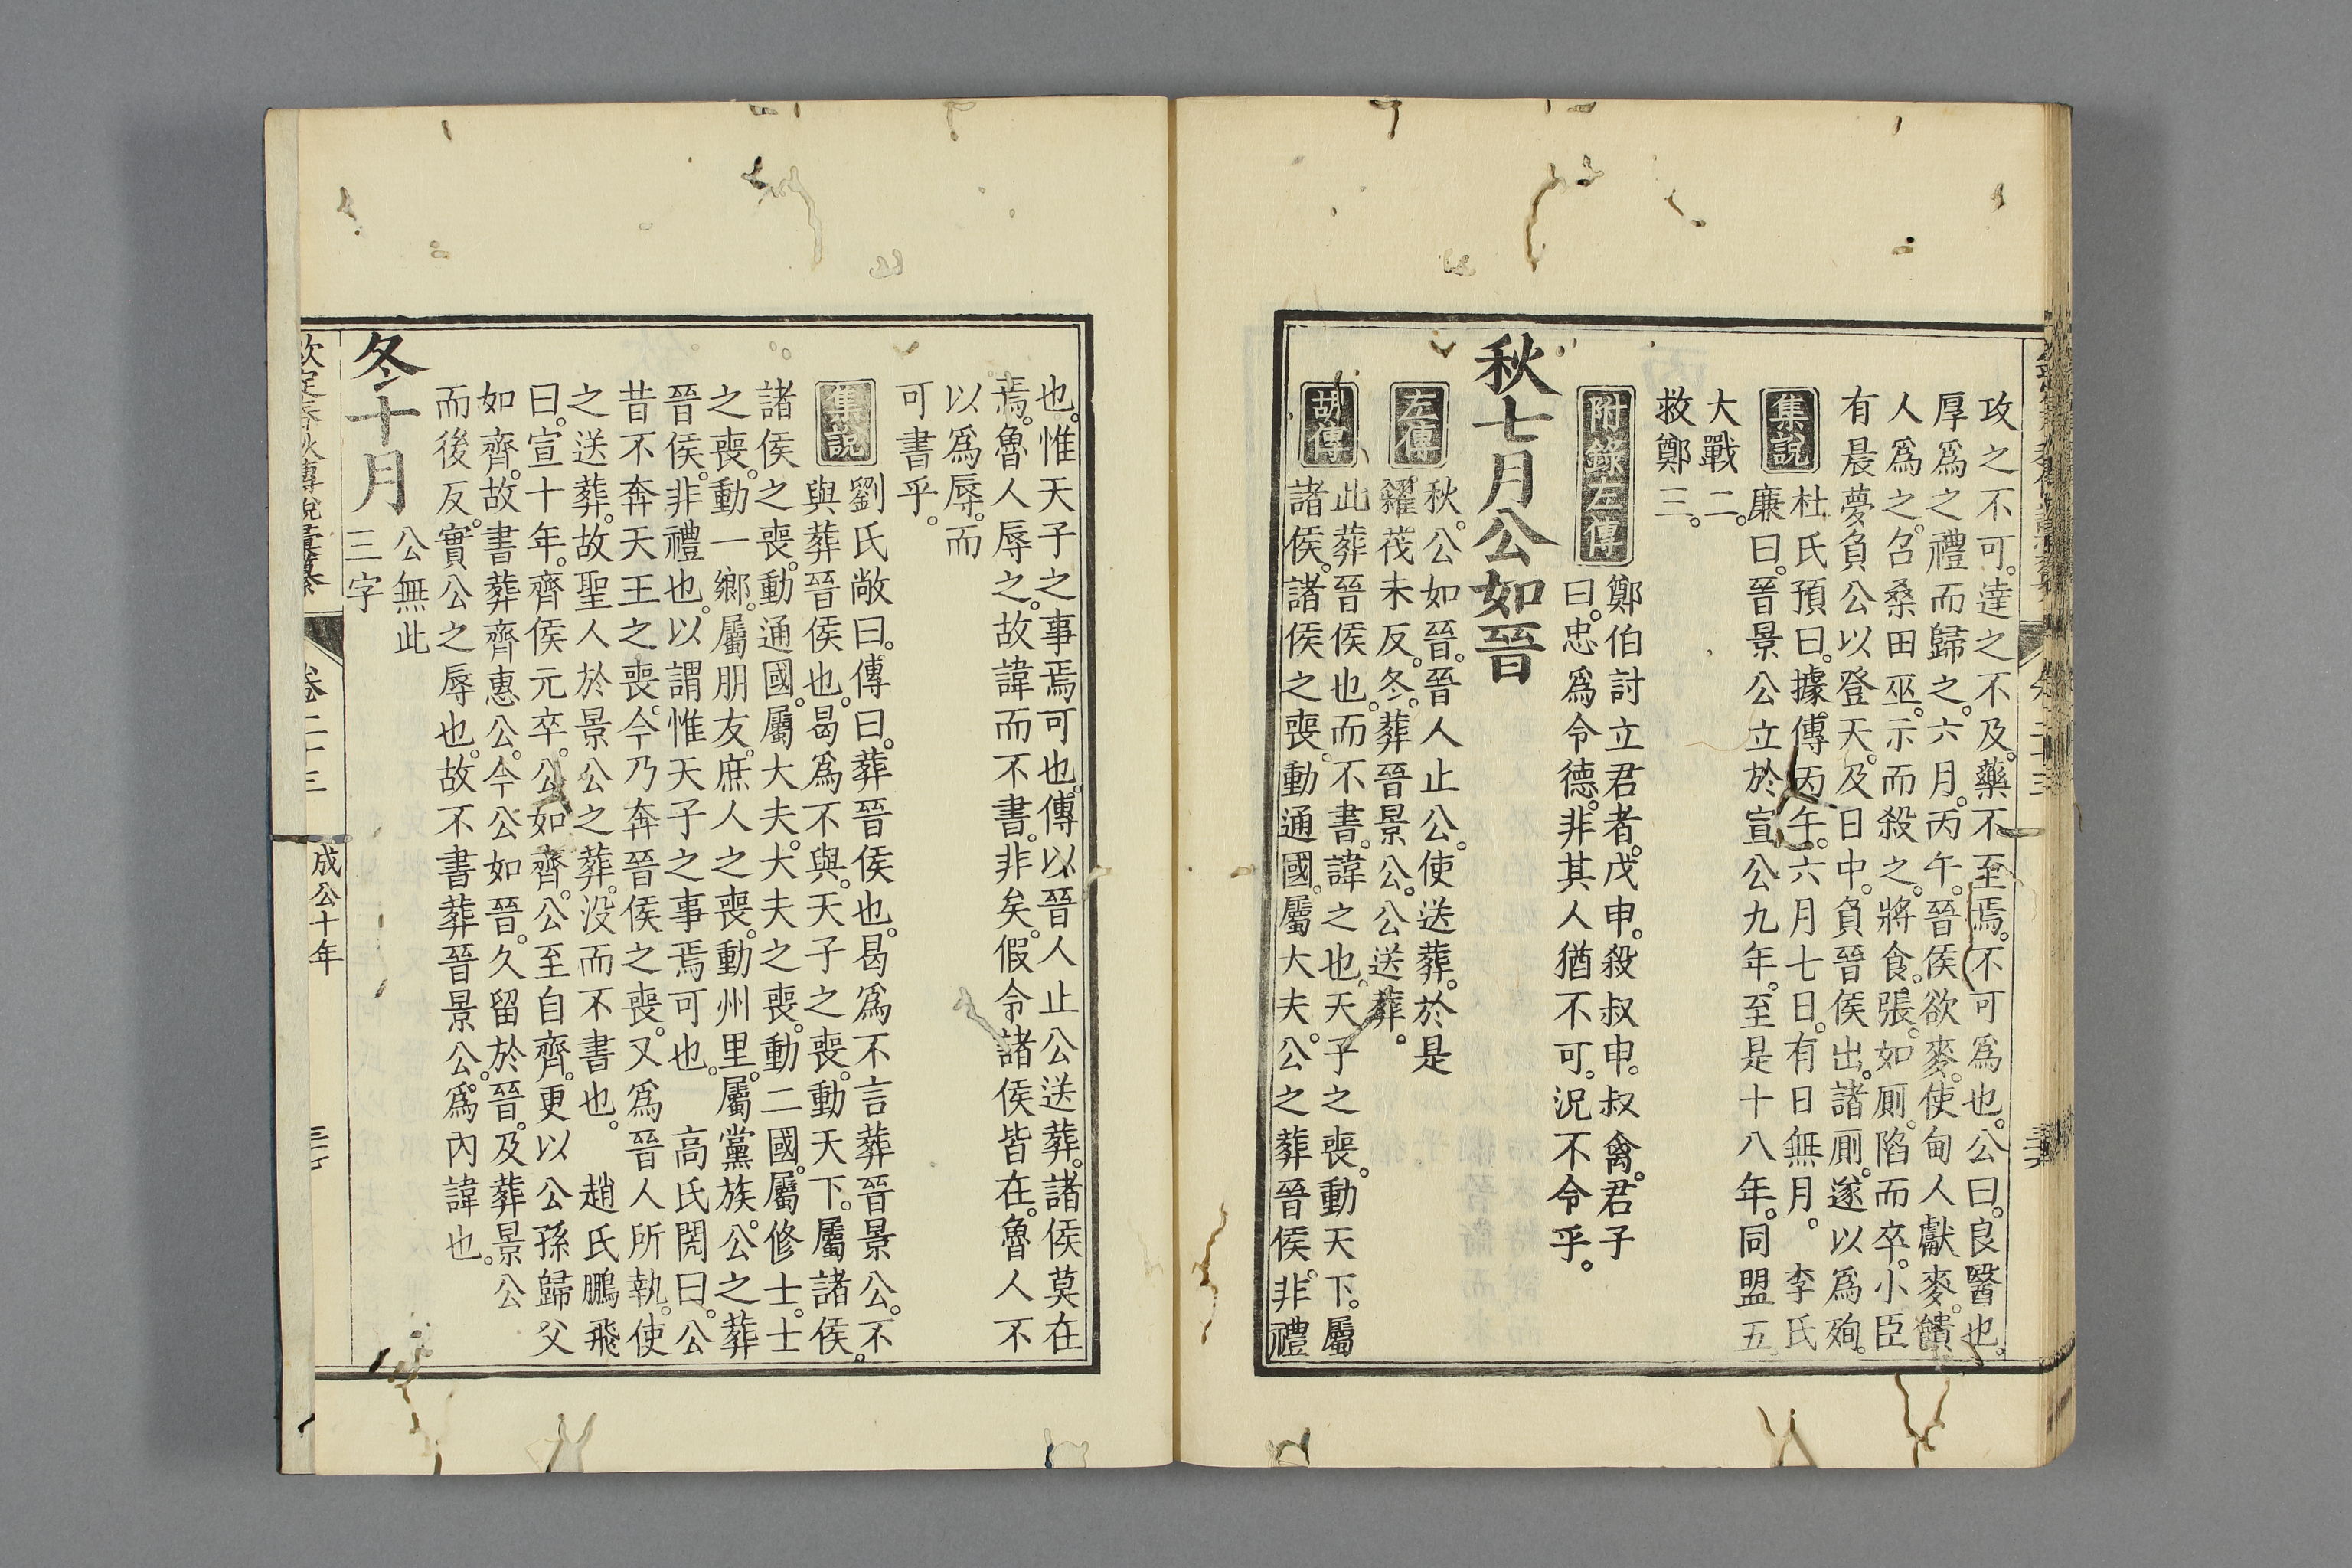 攻之不可。達之不及。藥不至焉。不可爲也。公曰。良醫也。
厚爲之禮而歸之。六月。丙午。晉侯欲麥。使甸人獻麥。饋
人爲之。召桑田巫。示而殺之。將食。張。如厠。陷而卒。小臣
有晨夢負公以登天。及日中。負晉侯出諸厠。遂以爲殉。
集說
杜氏預曰。據傳丙午。六月七日。有日無月。 李氏
廉曰。晉景公立於宣公九年。至是十八年。同盟五。
大戰二。
救鄭三。
附錄左傳
鄭伯討立君者。戊申。殺叔申。叔禽。君子
曰。忠爲令德。非其人猶不可。況不令乎。
秋七月公如晉
左傳
秋。公如晉。晉人止公。使送葬。於是
糴茷未反。冬。葬晉景公。公送葬。
胡傳
此葬晉侯也。而不書。諱之也。天子之喪。動天下。屬
諸侯。諸侯之喪。動通國。屬大夫。公之葬晉侯。非禮
也。惟天子之事焉可也。傳以晉人止公送葬。諸侯莫在
焉。魯人辱之。故諱而不書。非矣。假令諸侯皆在。魯人不
以爲辱。而
可書乎。
集說
劉氏敞曰。傳曰。葬晉侯也。曷爲不言葬晉景公。不
與葬晉侯也。曷爲不與。天子之喪。動天下。屬諸侯。
諸侯之喪。動通國。屬大夫。大夫之喪。動二國。屬修士。士
之喪。動一鄉。屬朋友。庶人之喪。動州里。屬黨族。公之葬
晉侯。非禮也。以謂惟天子之事焉可也。 高氏閌曰。公
昔不奔天王之喪。今乃奔晉侯之喪。又爲晉人所執。使
之送葬。故聖人於景公之葬。沒而不書也。 趙氏鵬飛
曰。宣十年。齊侯元卒。公如齊。公至自齊。更以公孫歸父
如齊。故書葬齊惠公。今公如晉。久留於晉。及葬景公
而後反。實公之辱也。故不書葬晉景公。爲內諱也。
冬十月
公無此
三字
欽定春秋傳說彙纂
卷二十三
成公十年